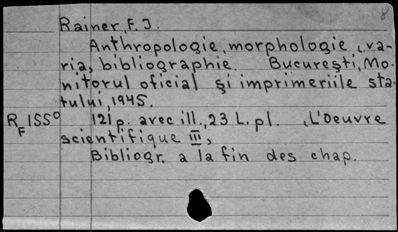 8
Rainer, F. J.
Anthropologie, morphologie, va-
ria, bibliographie. Bucureşti, Mo-
nitorul oficial şi imprimeriile sta-
tului, 1945.
RF 1550 121 p. avec ill., 23 L. pl. (L'Oeuvre
scientifique III,
Bibliogr. a la fin des chap.